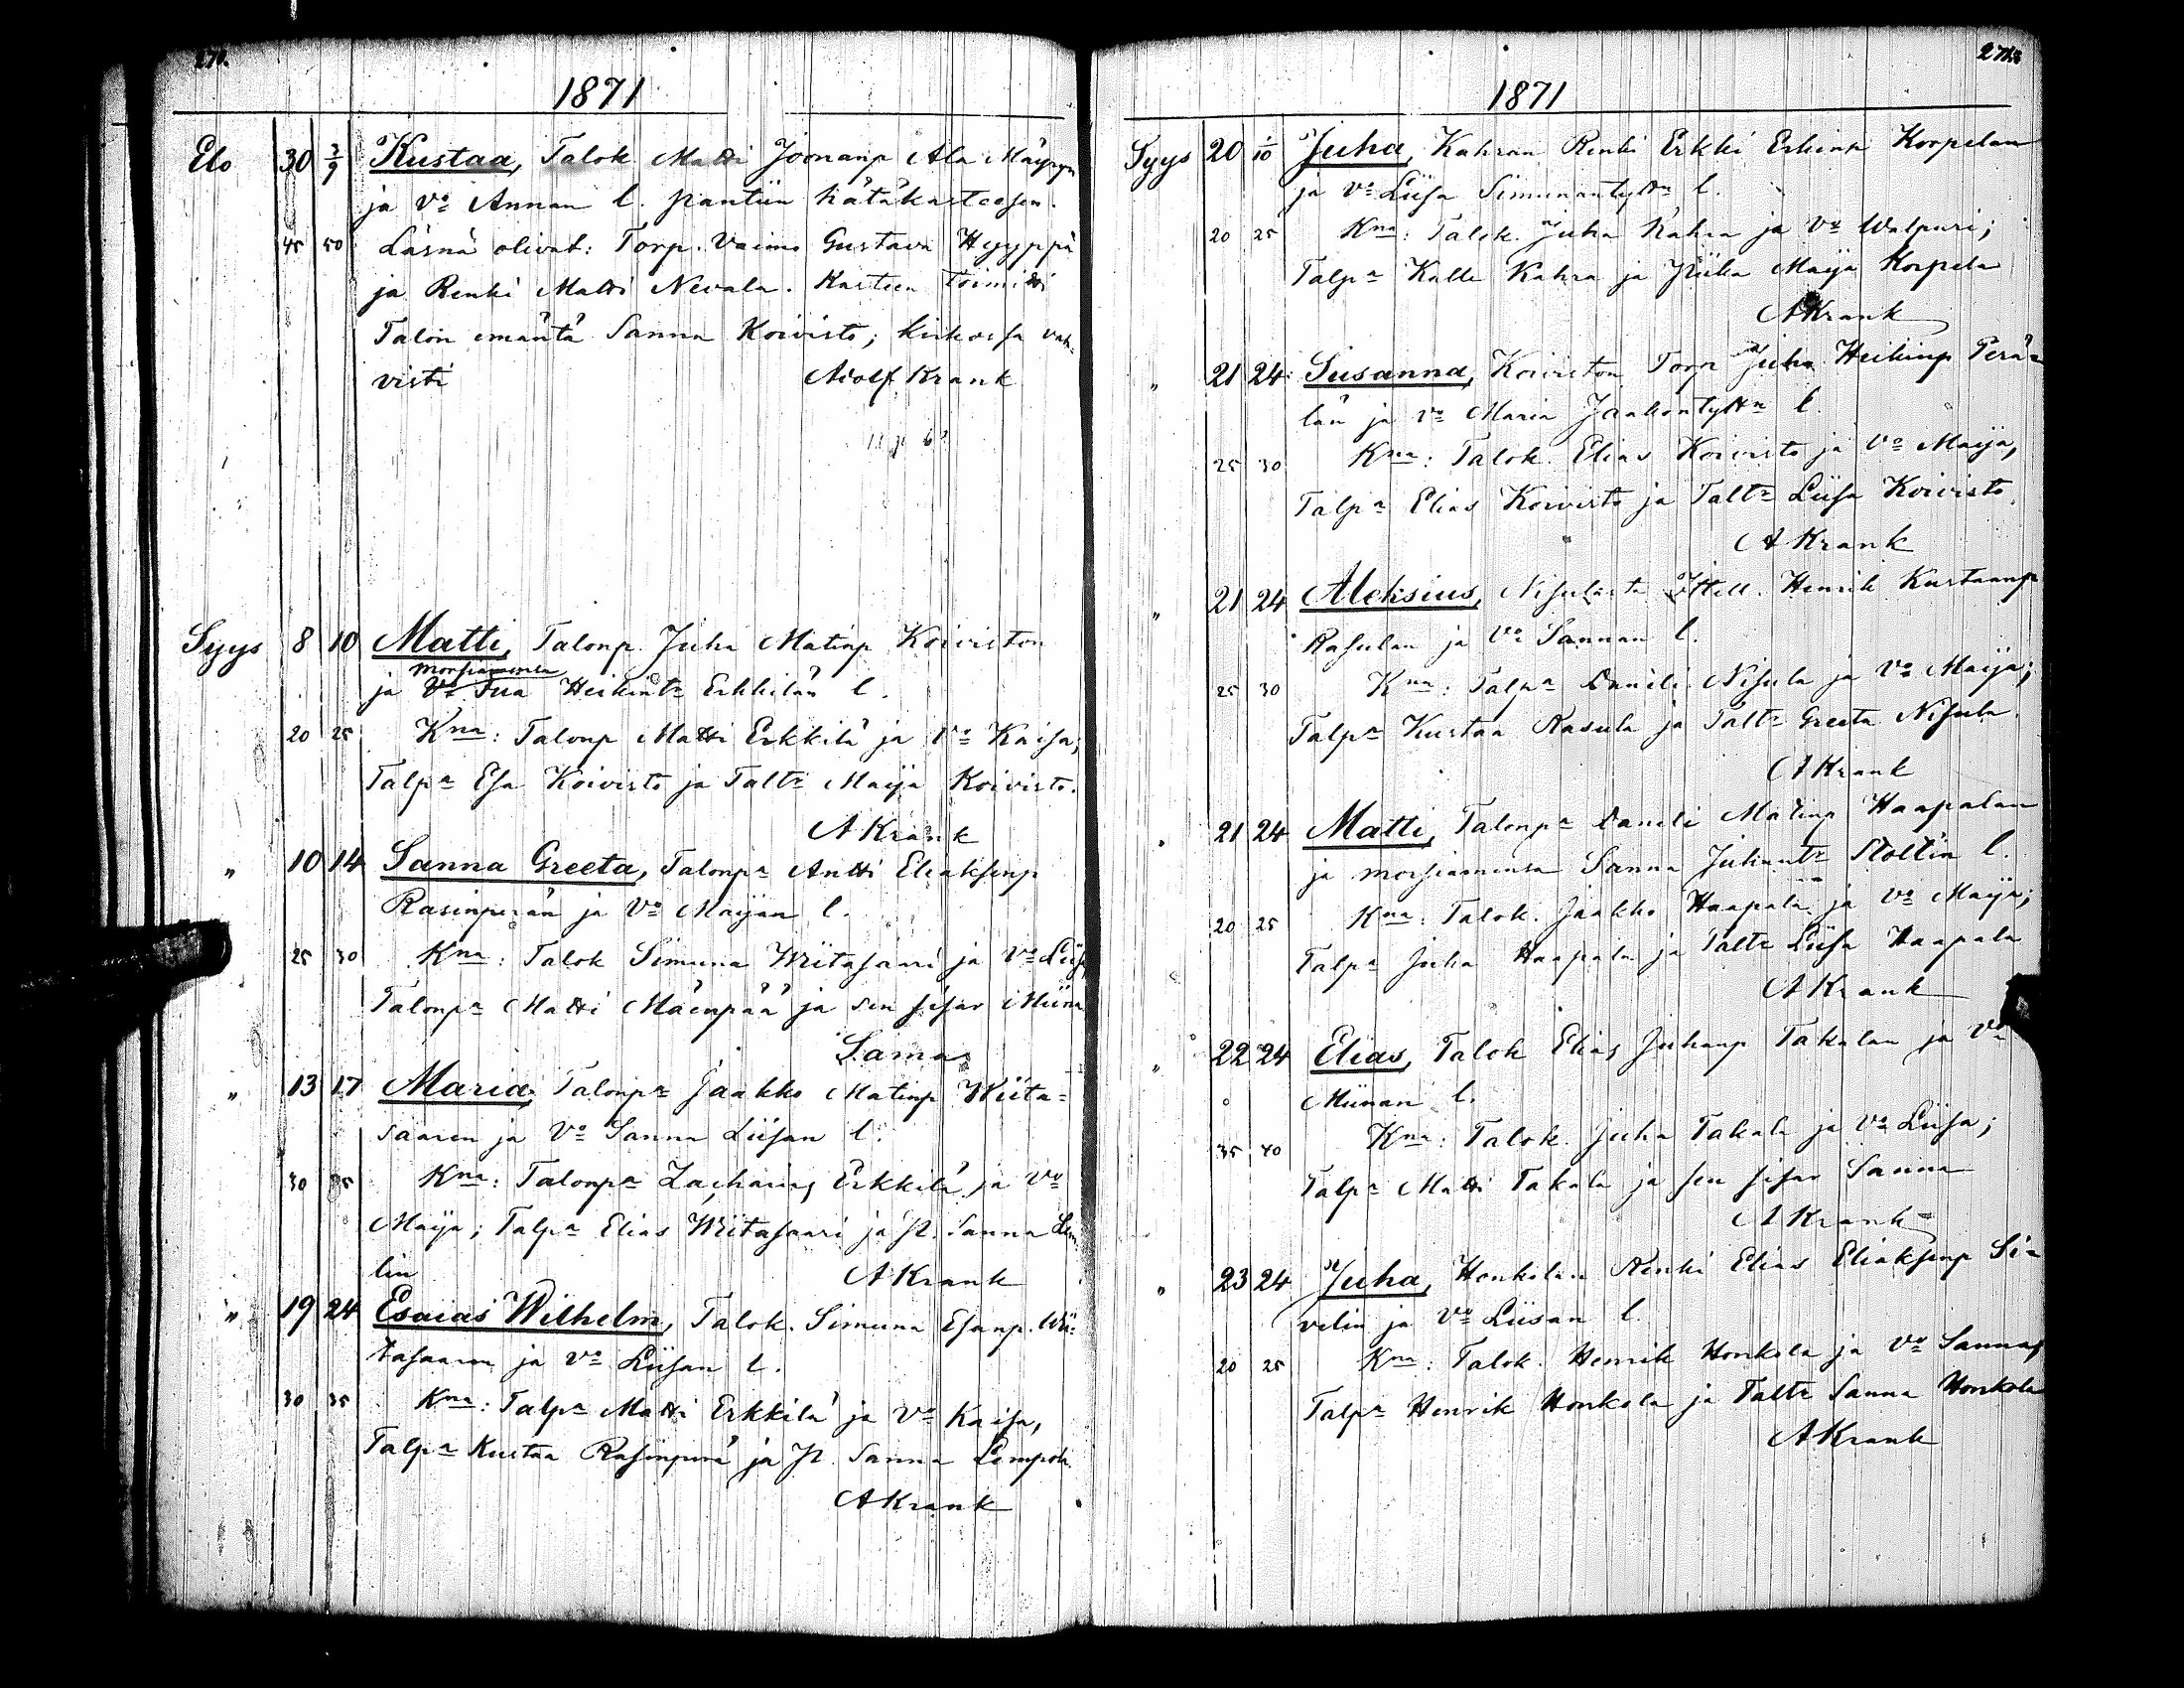 270.
1871
Elo 30 2/9 Kustaa, Talok Matti Joonanp Ala Mäypyn
ja Vo Annan l. pantiin hätäkasteesen.
45 50 Läsnä olivat: Torp. Vaimo Gustava Hyyppä
ja Renki Matti Nevala. Kasteen toimitti
Talon emäntä Sanna Koivisto; kirkossa vah-
visti Adolf Krank
Syys 8 10 Matti, Talonp. Juha Matinp Koiviston
morsiamensa
ja Vo Fua Heikintr Erkkilän l.
20 25 Kna: Talonp Matti Erkkilä ja Vo Kaisa;
Talpa Esa Koivisto ja Taltr Maija Koivisto.
AKrank
" 10 14 Sanna Greeta, Talonpa Antti Eliaksenp
Rasinperän ja Vo Maijan l.
25 30 Kna: Talok Simuna Wiitasaari ja Vo Liisa
Talonpa Matti Mäenpää ja sen sisar Miina
Sama
" 13 17 Maria, Talonpa Jaakko Matinp Wiita-
saaren ja Vo Sanna Liisan l.
30 35 Kna: Talonpa Zacharias Erkkilä ja Vo
Maija; Talpa Elias Wiitasaari ja p. Sanna
lin AKrank
" 19 24 Esaias Wilhelm, Talok. Simuna Esanp. Wii-
tasaaren ja Vo Liisan l.
30 35 Kna: Talpa Matti Erkkilä ja Vo Kaisa,
Talpa Kustaa Rasinperä ja p. Sanna
AKrank
271.
1871
Syys 20 1/10 Juha, Kahran Renki Erkki Erkinp Korpelan
ja Vo Liisa Simunantyttn l.
20 25 Kna: Talok. Juha Kahra ja Vo Walpuri;
Talpa Kalle Kahra ja piika Maija Korpela
AKrank
" 21 24 Susanna, Koiviston Torp Juha Heikinp Perä-
län ja Vo Maria Jaakontyttn l.
25 30 Kna: Talok. Elias Koivisto ja Vo Maija,
Talpa Elias Koivisto ja Taltr Liisa Koivisto.
AKrank
" 21 24 Aleksius, Nisulasta Ittell. Henrik Kustaanp
Rasulan ja Vo Sannan l.
25 30 Kna: Talpa Daneli Nisula ja Vo Maija;
Talpa Kustaa Rasula ja Taltr Greeta Nisula.
AKrank
" 21 24 Matti, Talonpa Daneli Matinp Haapalan
ja morsiamensa Sanna Juhantr Stoltin l.
20 25 Kna: Talok. Jaakko Haapala ja Vo Maija;
Talpa Juha Haapala ja Taltr Liisa Haapala
AKrank
" 22 24 Elias, Talok Elias Juhanp Takalan ja Vo
Miinan l.
35 40 Kna: Talok. Juha Takala ja Vo Liisa;
Talpa Matti Takala ja sen sisar Sanna
AKrank
" 23 24 Juha, Honkolan Renki Elias Eliaksenp Si-
velin ja Vo Liisan l.
20 25 Kna: Talok. Henrik Honkola ja Vo Sanna;
Talpa Henrik Honkola ja Taltr Sanna Honkola
AKrank